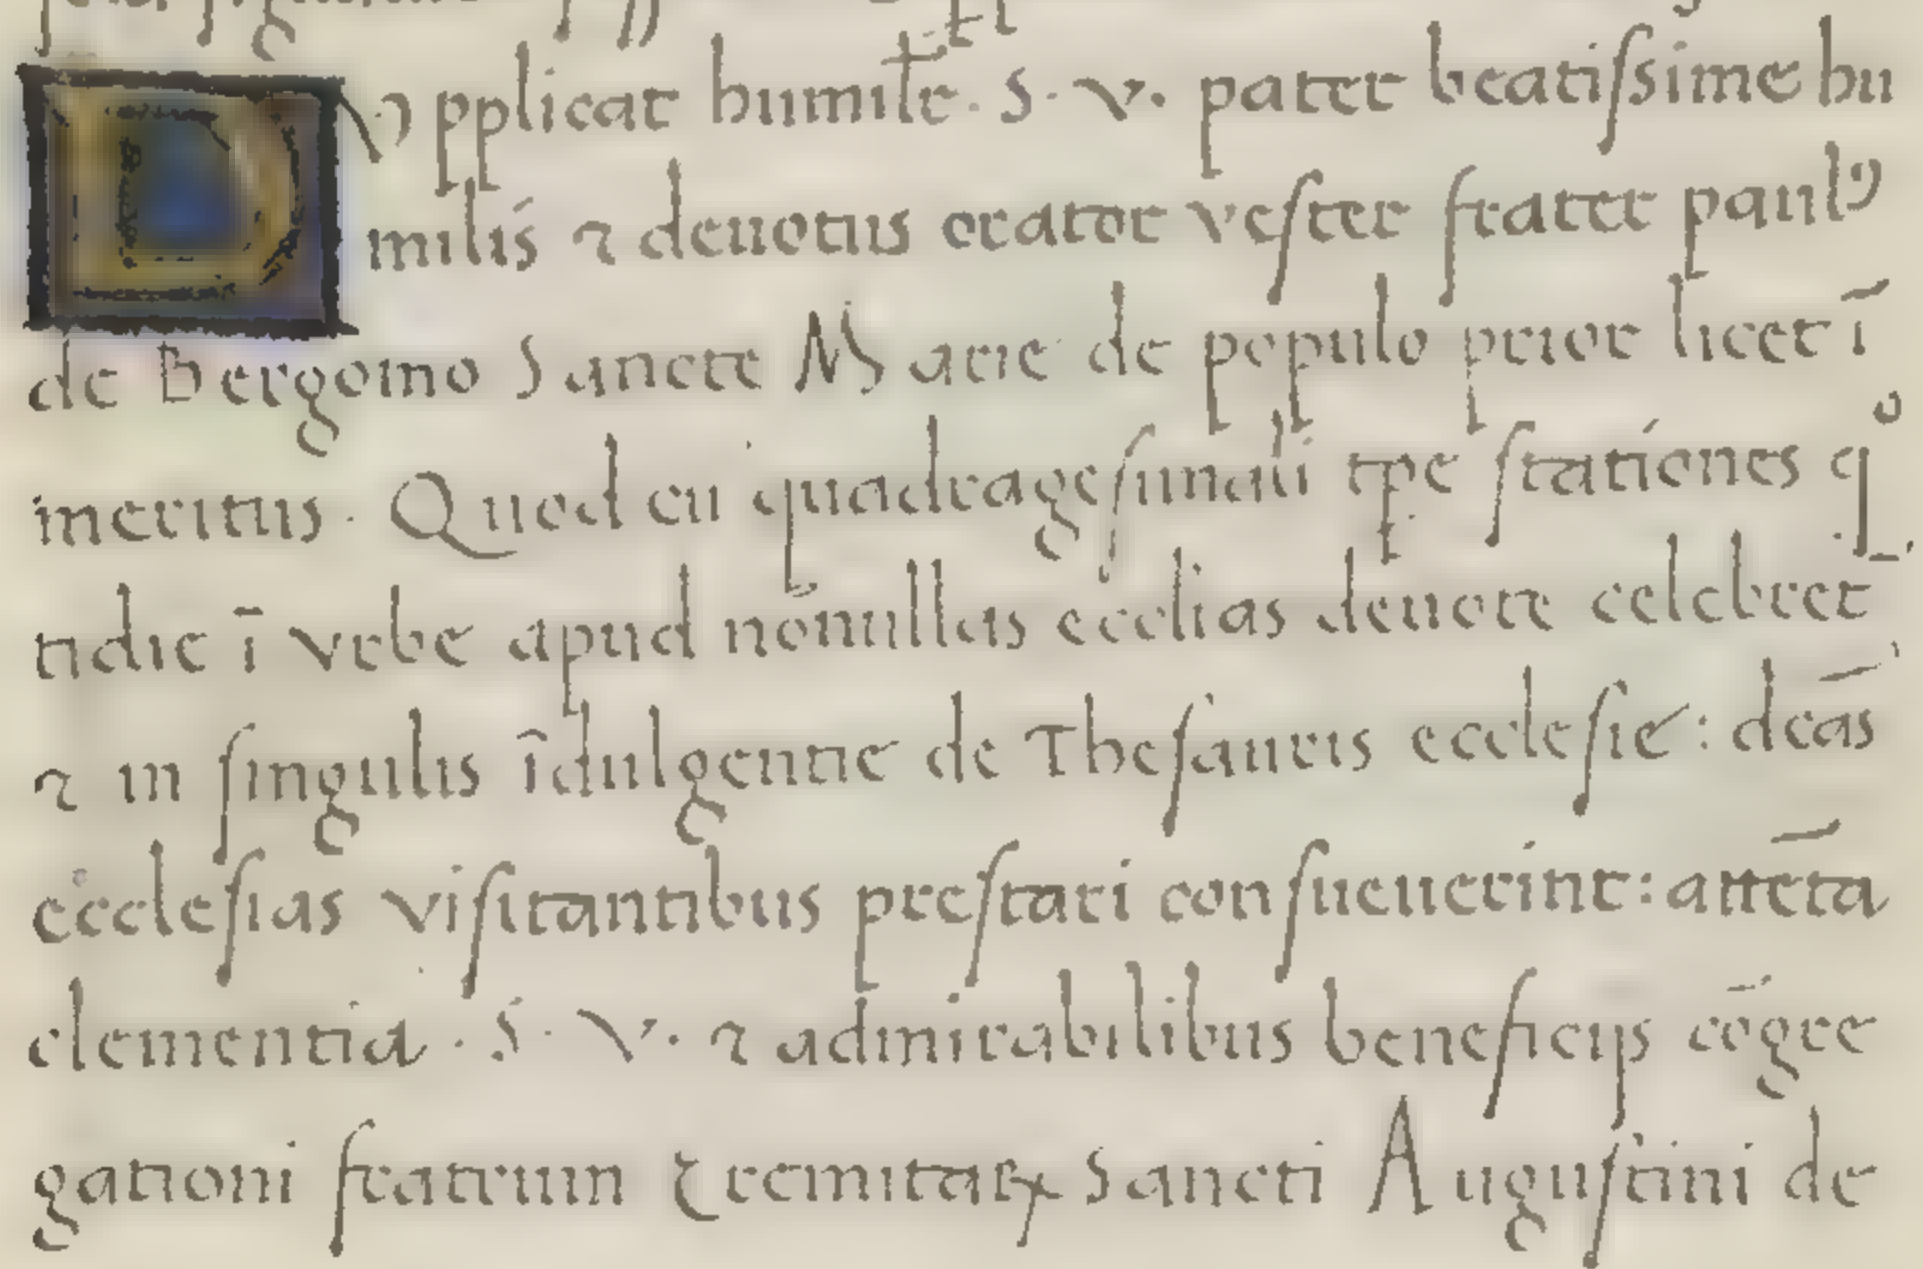 Supplicat humilr̄. S. V. pater beatiſsime hu
milis ⁊ deuotus orator veſter frater paulꝰ
de Bergomo Sancte Marie de populo prior licet ī
meritus. Quod cū quadrageſimali tp̄e ſtationes qͦ
tidie ī vrbe apud nōnullas ecclias deuote celebrēt
⁊ in ſingulis īdulgentie de Theſauris eccleſie: dc̄as
eccleſias viſitantibus preſtari conſueuerint: attēta
clementia. S. V. ⁊ admirabilibus beneficijs cōgre
gationi fratrum Eremitaꝝ Sancti Auguſtini de